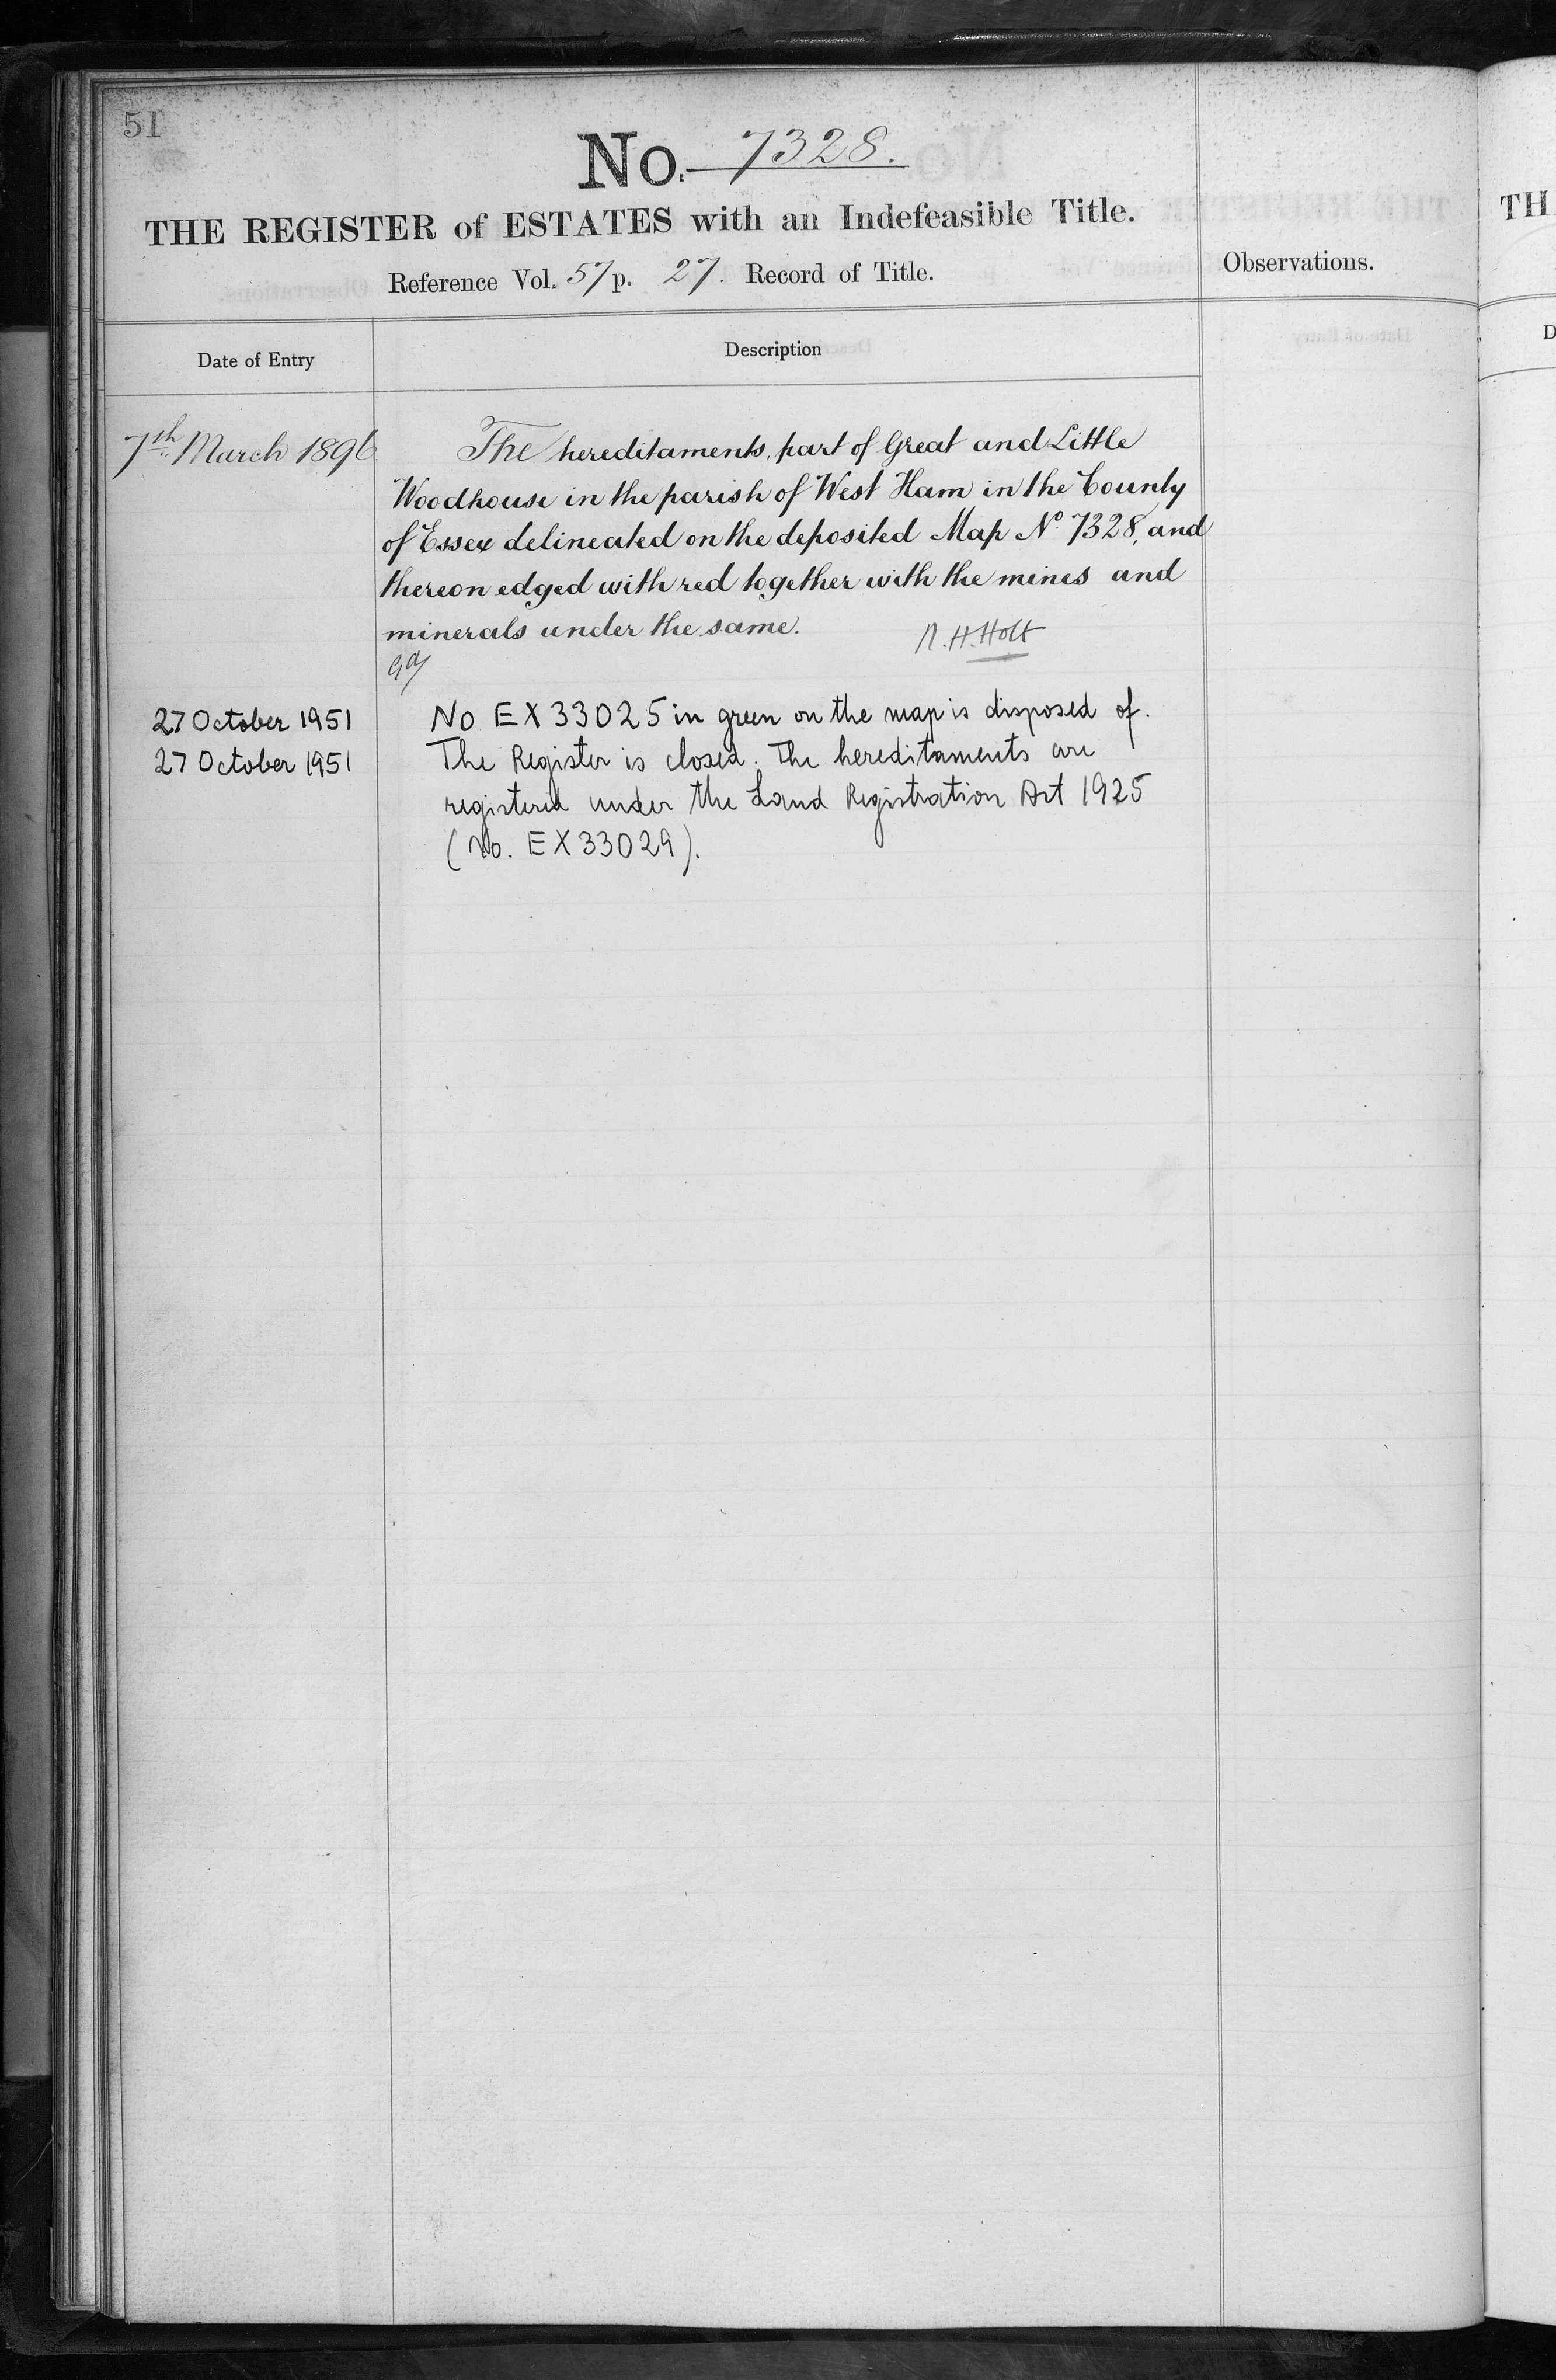 51
No. 7328.
THE REGISTER of ESTATES with an Indefeasible Title.
Reference Vol. 57 p. 27. Record of Title.
Observations.
Date of Entry
Description
7th March 1896
The hereditaments, part of Great and Little
Woodhouse in the parish of West Ham in the County
of Essex delineated on the deposited Map No 7328, and
thereon edged with red together with the mines and
minerals under the same.
R.H. Holt
27 October 1951
No EX33025 in green on the map is disposed of.
27 October 1951
The Register is closed. The hereditaments are
registered under the Land Registration Act 1925
(No. EX33029).
TH
D